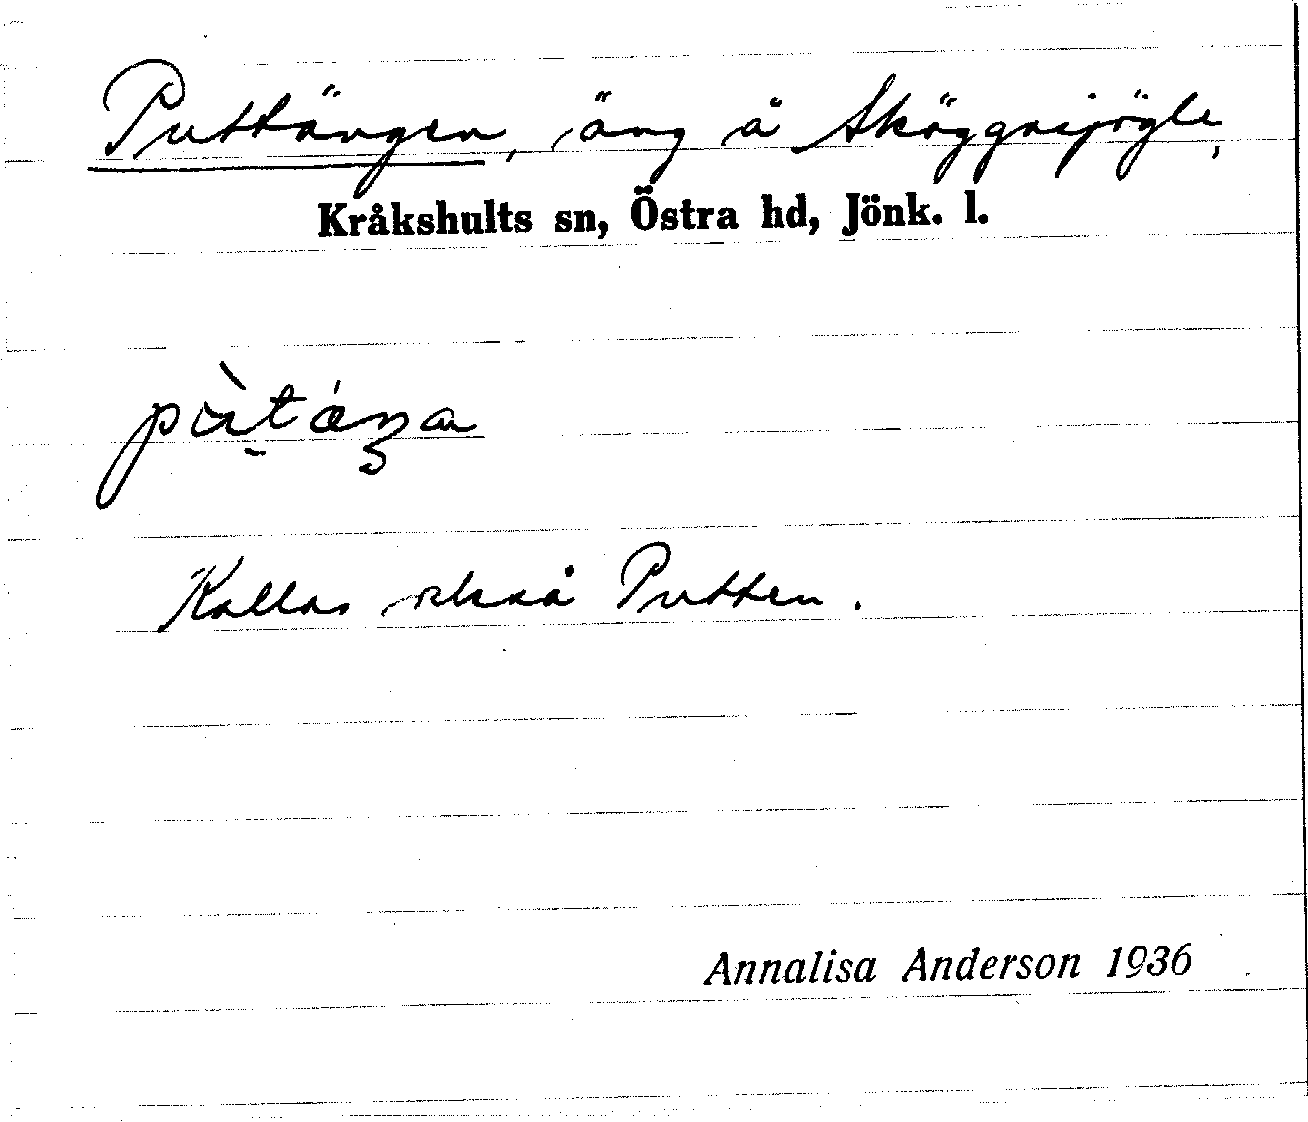 Puttängen, äng å Sköggnejögle,
Kråkshults sn, Östra hd, Jönk. l.
Kallas också Putten.
Annalisa Anderson 1936